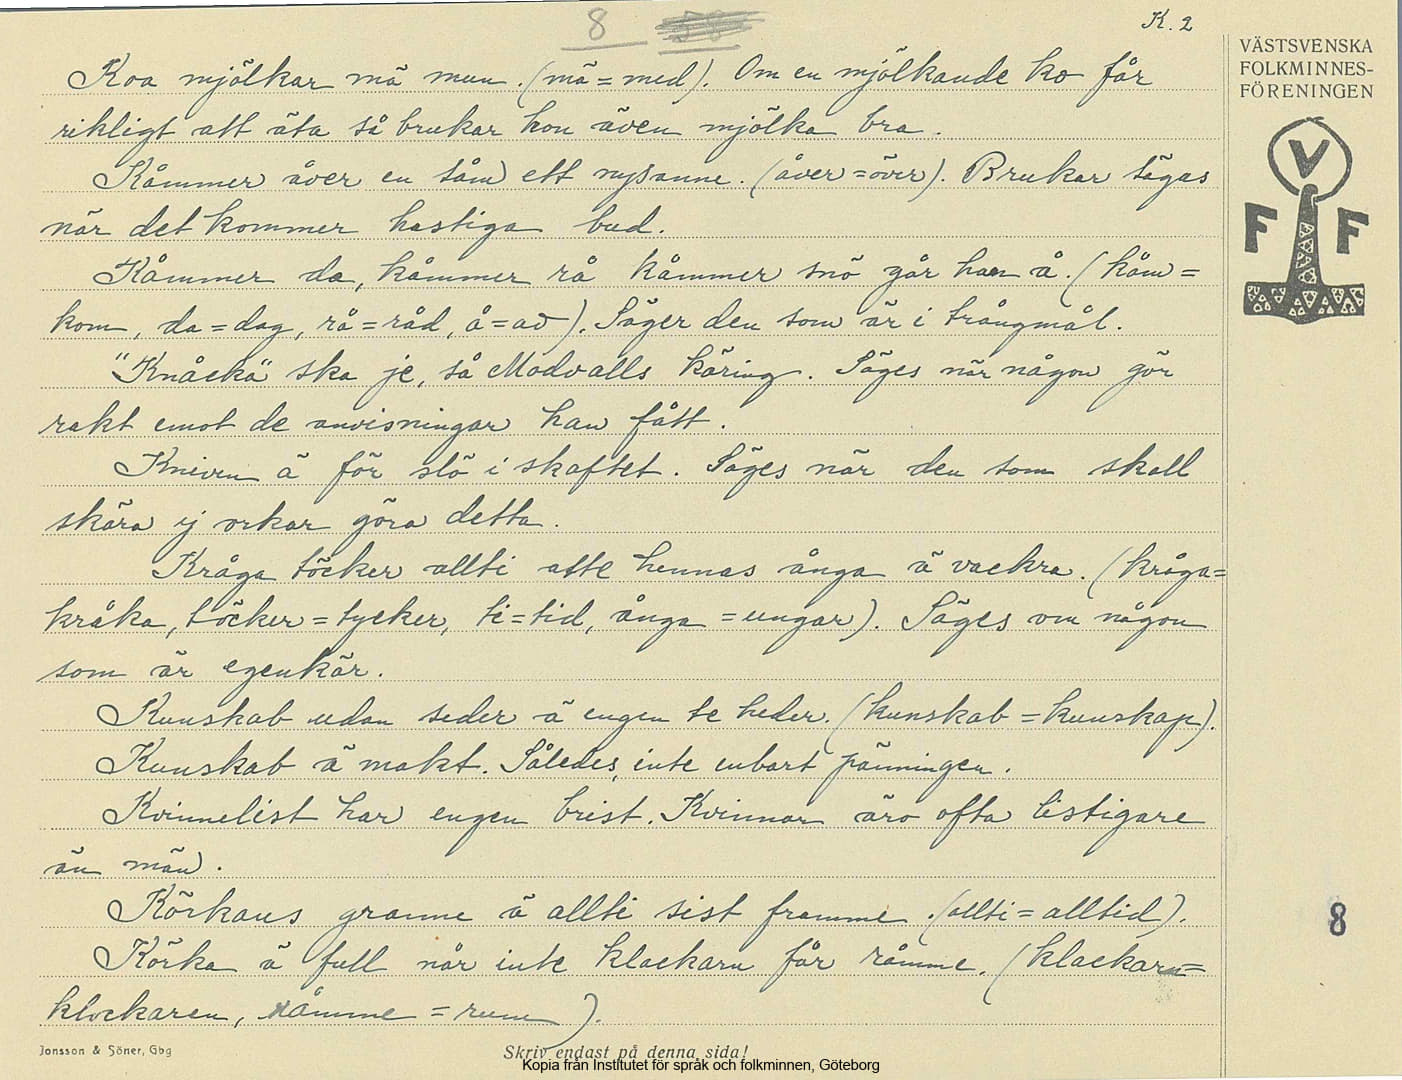 8 58
K. 2
VÄSTSVENSKA
FOLKMINNES-
FÖRENINGEN
V
F F
Koa mjölkar mä mun. (mä = med). Om en mjölkande ko får
rikligt att äta så brukar hon även mjölka bra.
Kåmmer åver en såm ett nysanne. (åver = över). Brukar sägas
när det kommer hastiga bud.
Kåmmer da, kåmmer rå kåmmer snö går han å. (kåm =
kom, da = dag, rå = råd, å = av). Säger den som är i trångmål.
"Knäcka" ska je, så Modvalls käring. Säges när någon gör
rakt emot de anvisningar han fått.
Knivrn ä för slö i skaftet. Säges när den som skall
skära ej orkar göra detta.
Kråga töcker allti atte hennas ånga ä vackra. (kråga =
kråka, töcker = tycker, ti = tid, ånga = ungar). Säges om någon
som är egenkär.
Kunskab udan seder ä engen te heder. (kunskab = kunskap).
Kunskab ä makt. Således, inte enbart pänningen.
Kvinnelist har engen brist. Kvinnor äro ofta listigare
än män.
Körkans granne ä allti sist framme. (allti = alltid).
Körka ä full når inte klackarn får råmme. (klackarn =
klockaren, råmme = rum).
8
Jonsson & Söner, Gbg
Skriv endast på denna sida!
Kopia från Institutet för språk och folkminnen, Göteborg